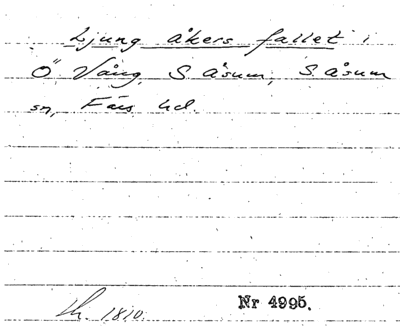 Ljung åkers fallet i
Ö Vång S. Åsum, S. Åsum
sn, Färs hd.
1810.
Nr 4995.